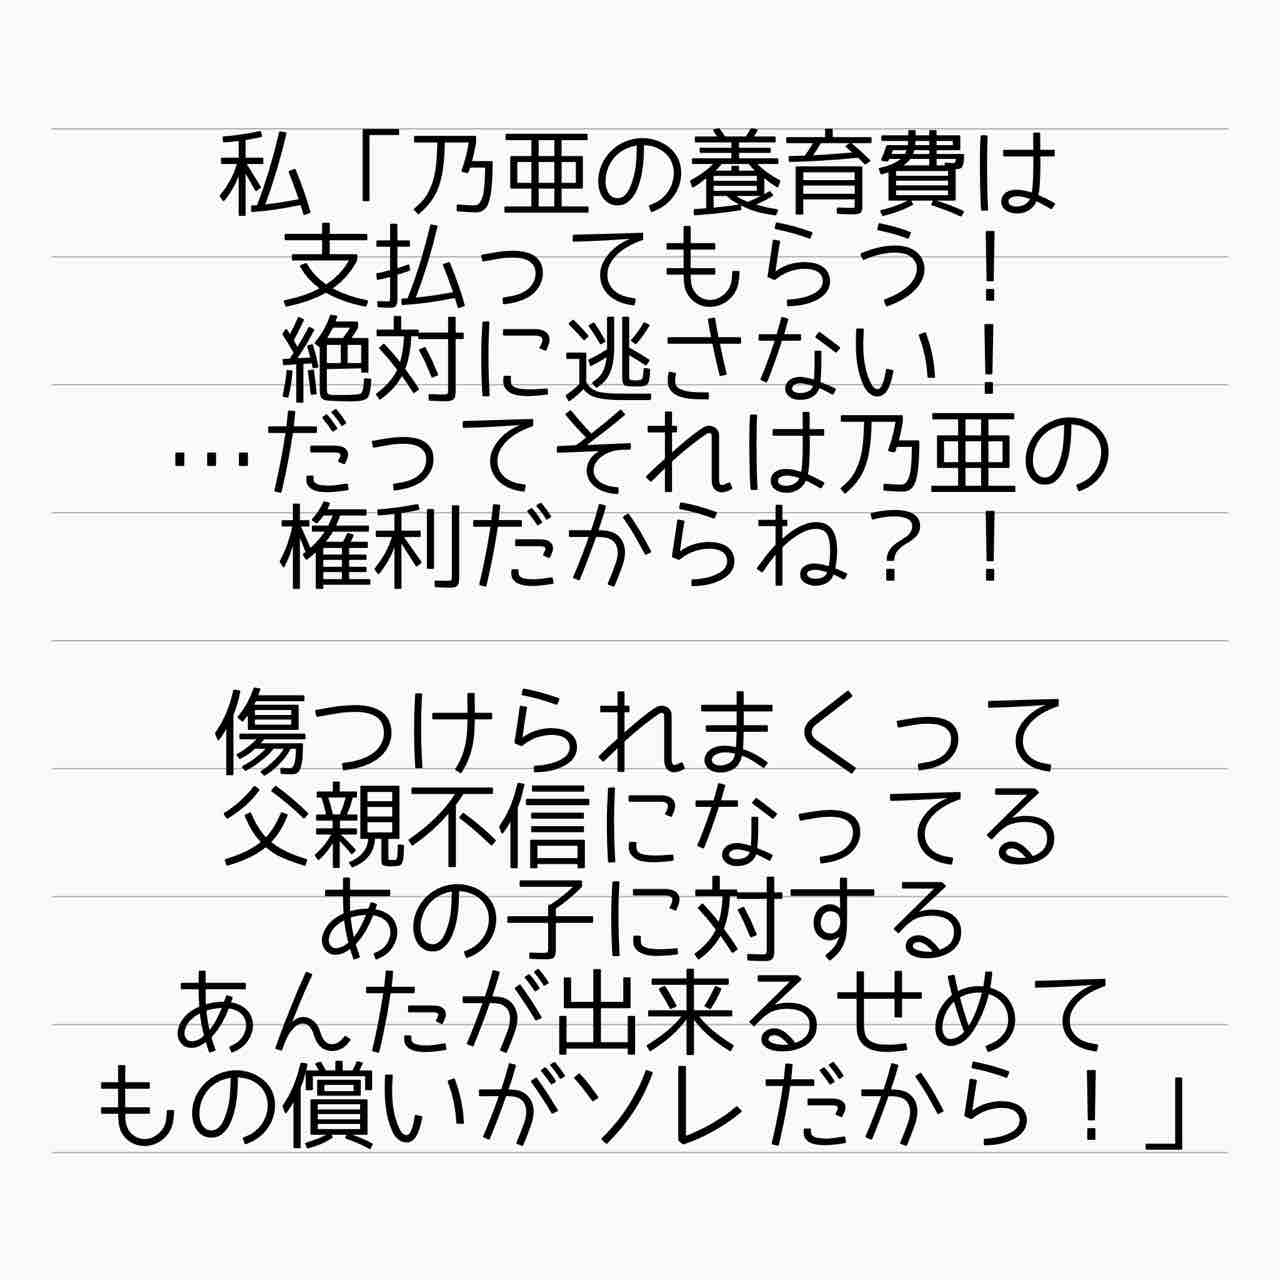 私「乃亜の養育費は
支払ってもらう！
絶対に逃さない！
…だってそれは乃亜の
権利だからね？！
傷つけられまくって
父親不信になってる
あの子に対する
あんたが出来るせめて
もの償いがソレだから！」